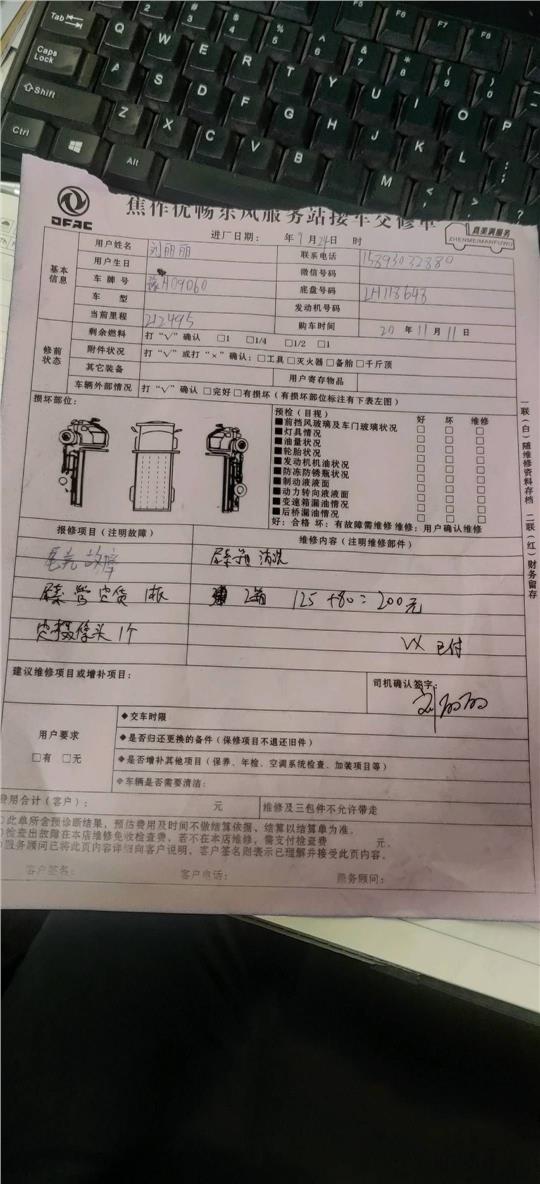 Tab
Q W E R T Y U I O P
Caps Lock
A S D F G H J K L
Shift
Z X C V B N M
Ctrl
Alt
F5 F6 F7 F8
DFAC
焦作优畅东风服务站接车交修单
真美满服务
ZHENMEIMANFUWU
进厂日期： 年 9 月 24 日 时
基本信息
用户姓名 刘丽丽 联系电话
用户生日 微信号码
车牌号 豫H09060 底盘号码 LH118648
车 型 发动机号码
当前里程 212495 购车时间 20 年 11 月 11 日
修前状态
剩余燃料 打“√”确认 □1 □1/4 □1/2 □1
附件状况 打“√”或打“×”确认：□工具□灭火器□备胎□千斤顶
其它装备 用户寄存物品
车辆外部情况 打“√”确认 □完好□有损坏（有损坏部位标注有下表左图）
损坏部位：
预检（目视） 好 坏 维修
■前挡风玻璃及车门玻璃状况 □ □ □
■灯具情况 □ □ □
■油量状况 □ □ □
■轮胎状况 □ □ □
■发动机机油状况 □ □ □
■防冻防锈瓶状况 □ □ □
■制动液液面 □ □ □
■动力转向液液面 □ □ □
■变速箱漏油情况 □ □ □
■后桥漏油情况 □ □ □
好：合格 坏：有故障需维修 维修：用户确认维修
一联（白）随维修资料存档 二联（红）财务留存
报修项目（注明故障） 维修内容（注明维修部件）
故障 清洗
尿素管 1根 2箱 125+80=200元
摄像头1个 VX 已付
建议维修项目或增补项目： 司机确认签字：
用户要求
□有 □无
◆交车时限
◆是否归还更换的备件（保修项目不退还旧件）
◆是否增补其他项目（保养、年检、空调系统检查、加装项目等）
◆车辆是否需要清洁：
费用合计（客户）： 元 维修及三包件不允许带走
此单所含预诊断结果，预估费用及时间不做结算依据、结算以结算单为准。
检查出故障在本店维修免收检查费，若不在本店维修，需支付检查费 元。
服务顾问已将此页内容详细向客户说明，客户签名则表示已理解并接受此页内容。
客户签名： 客户电话： 服务顾问：